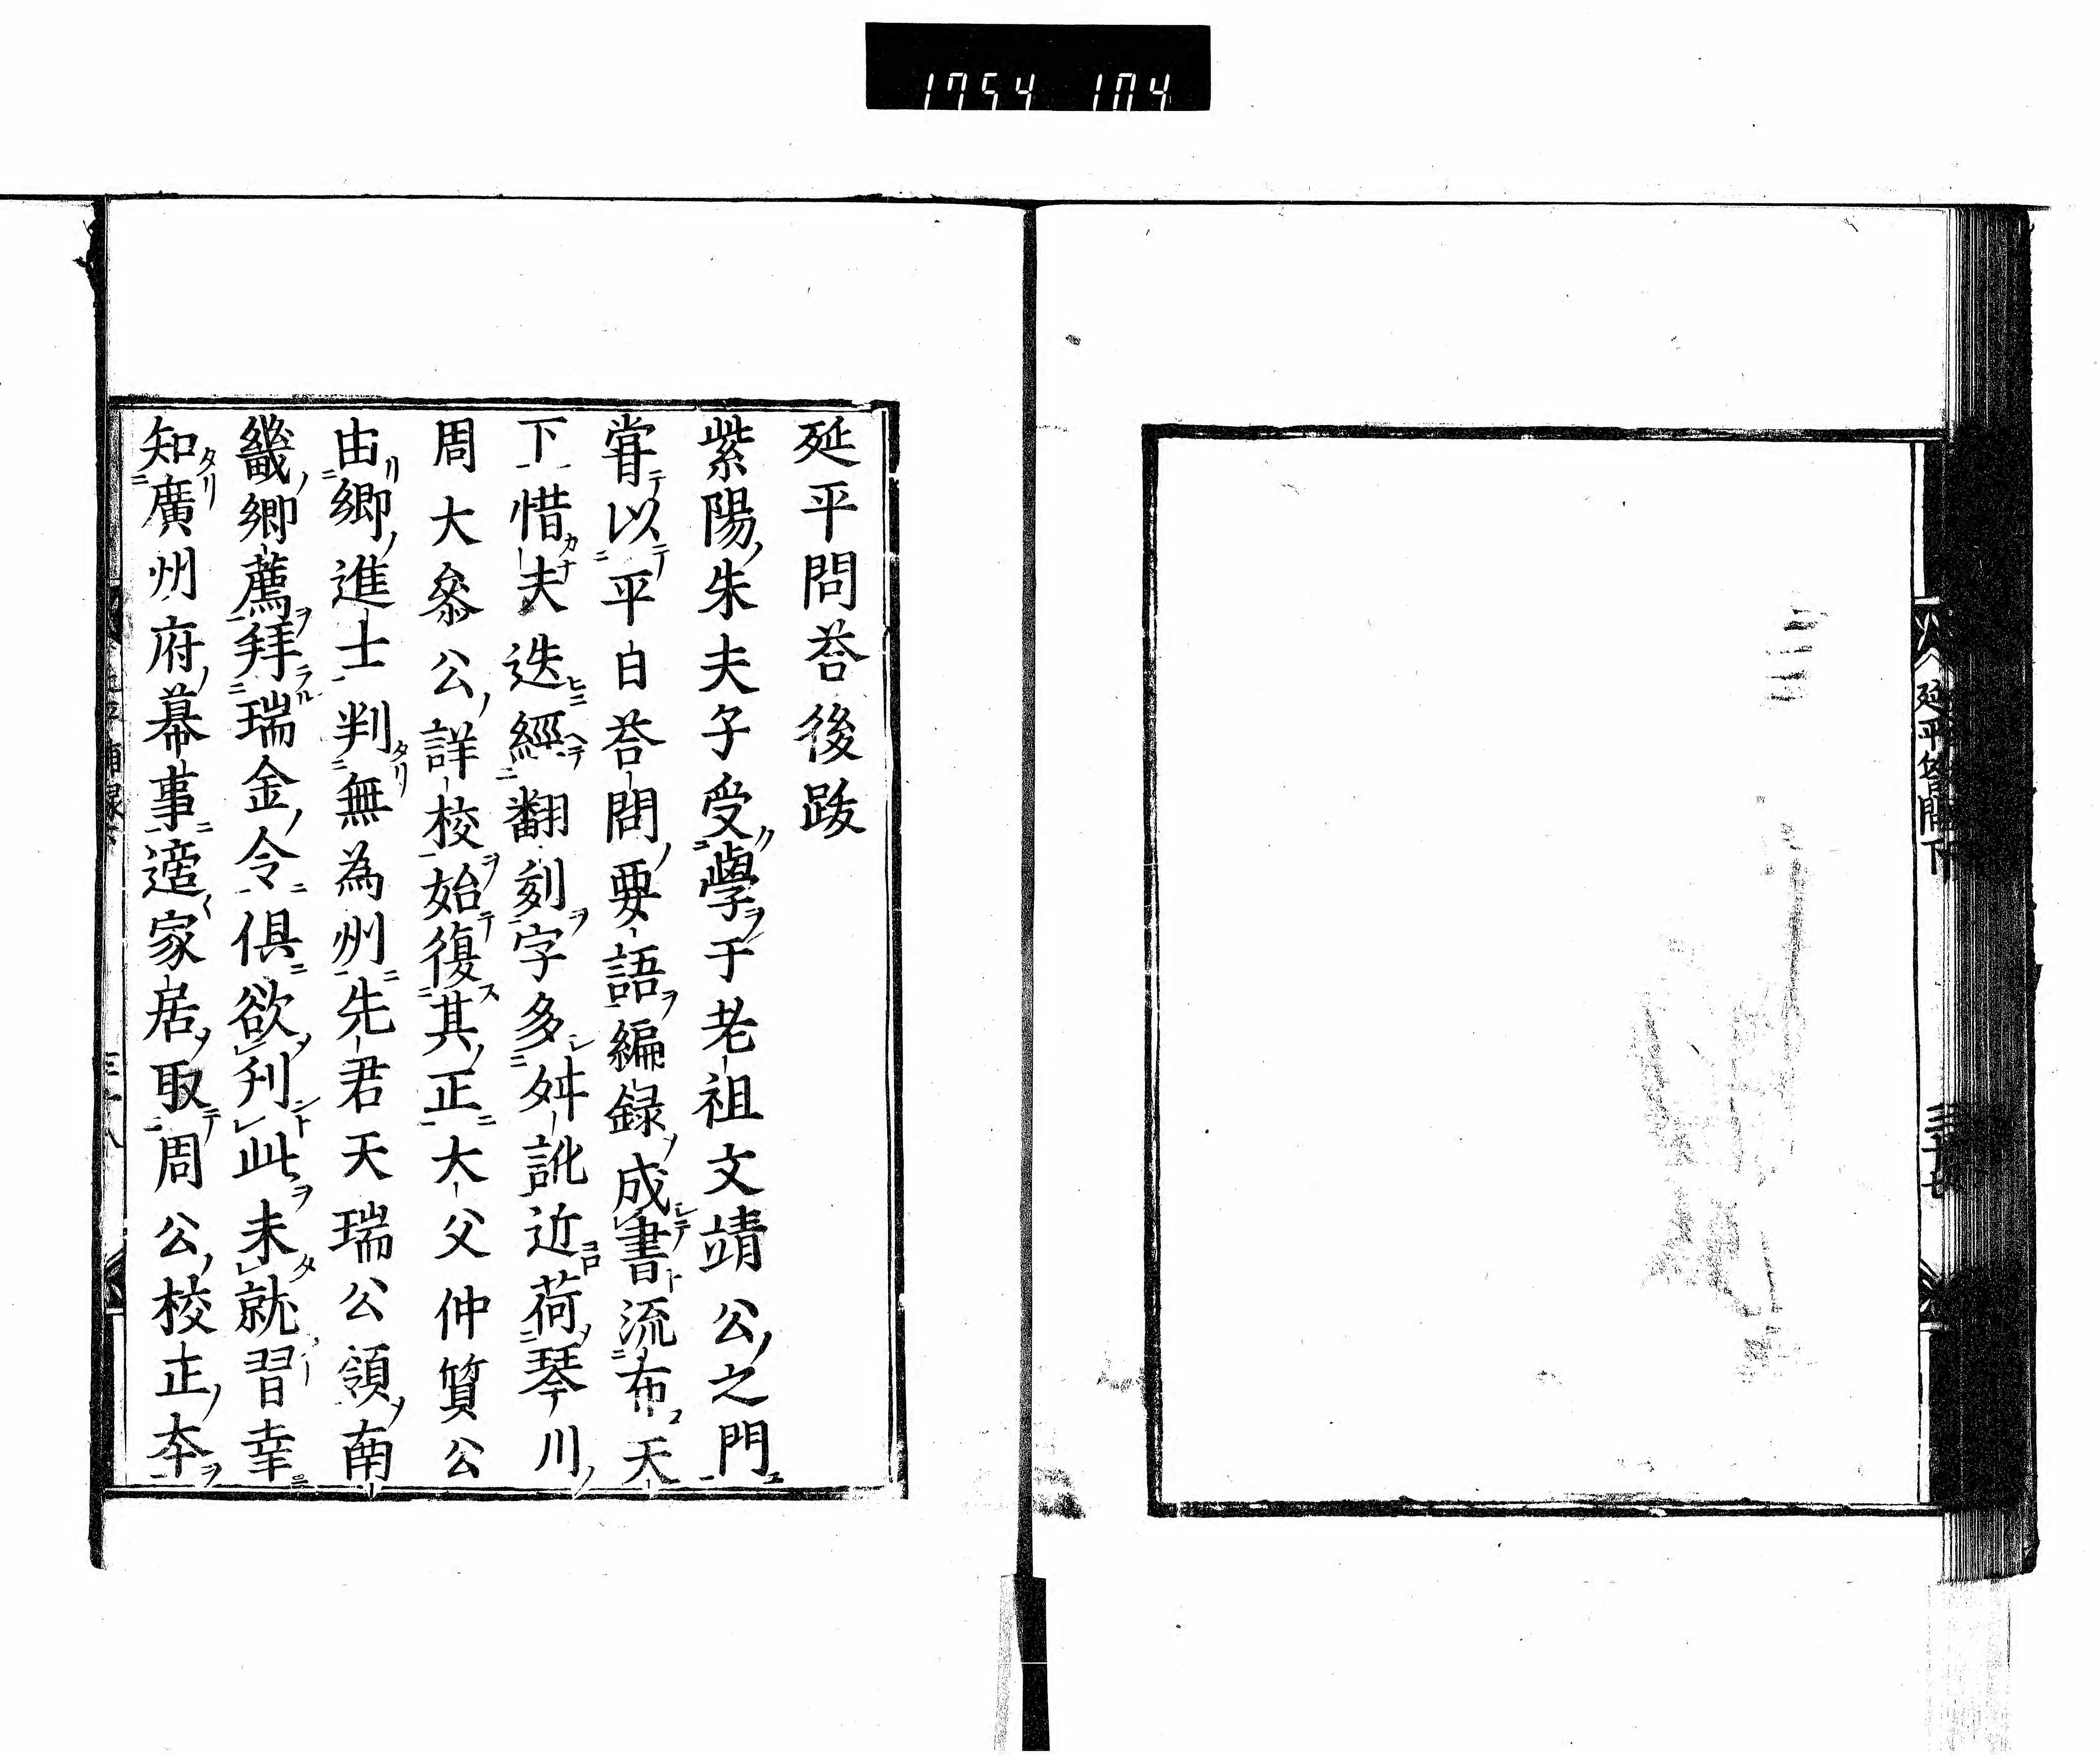 1754 104
延平答問下
三十七
延平問荅後跋
紫陽朱夫子受學于老祖文靖公之門
甞以平白荅問要語編録成書流布天
下惜夫迭經翻刻字多舛訛近荷琴川
周大叅公詳校始復其正大父仲質公
由鄉進士判無為州先君天瑞公領南
畿鄉薦拜瑞金令俱欲刋此未就習幸
知廣州府幕事適家居取周公校正夲
三十八